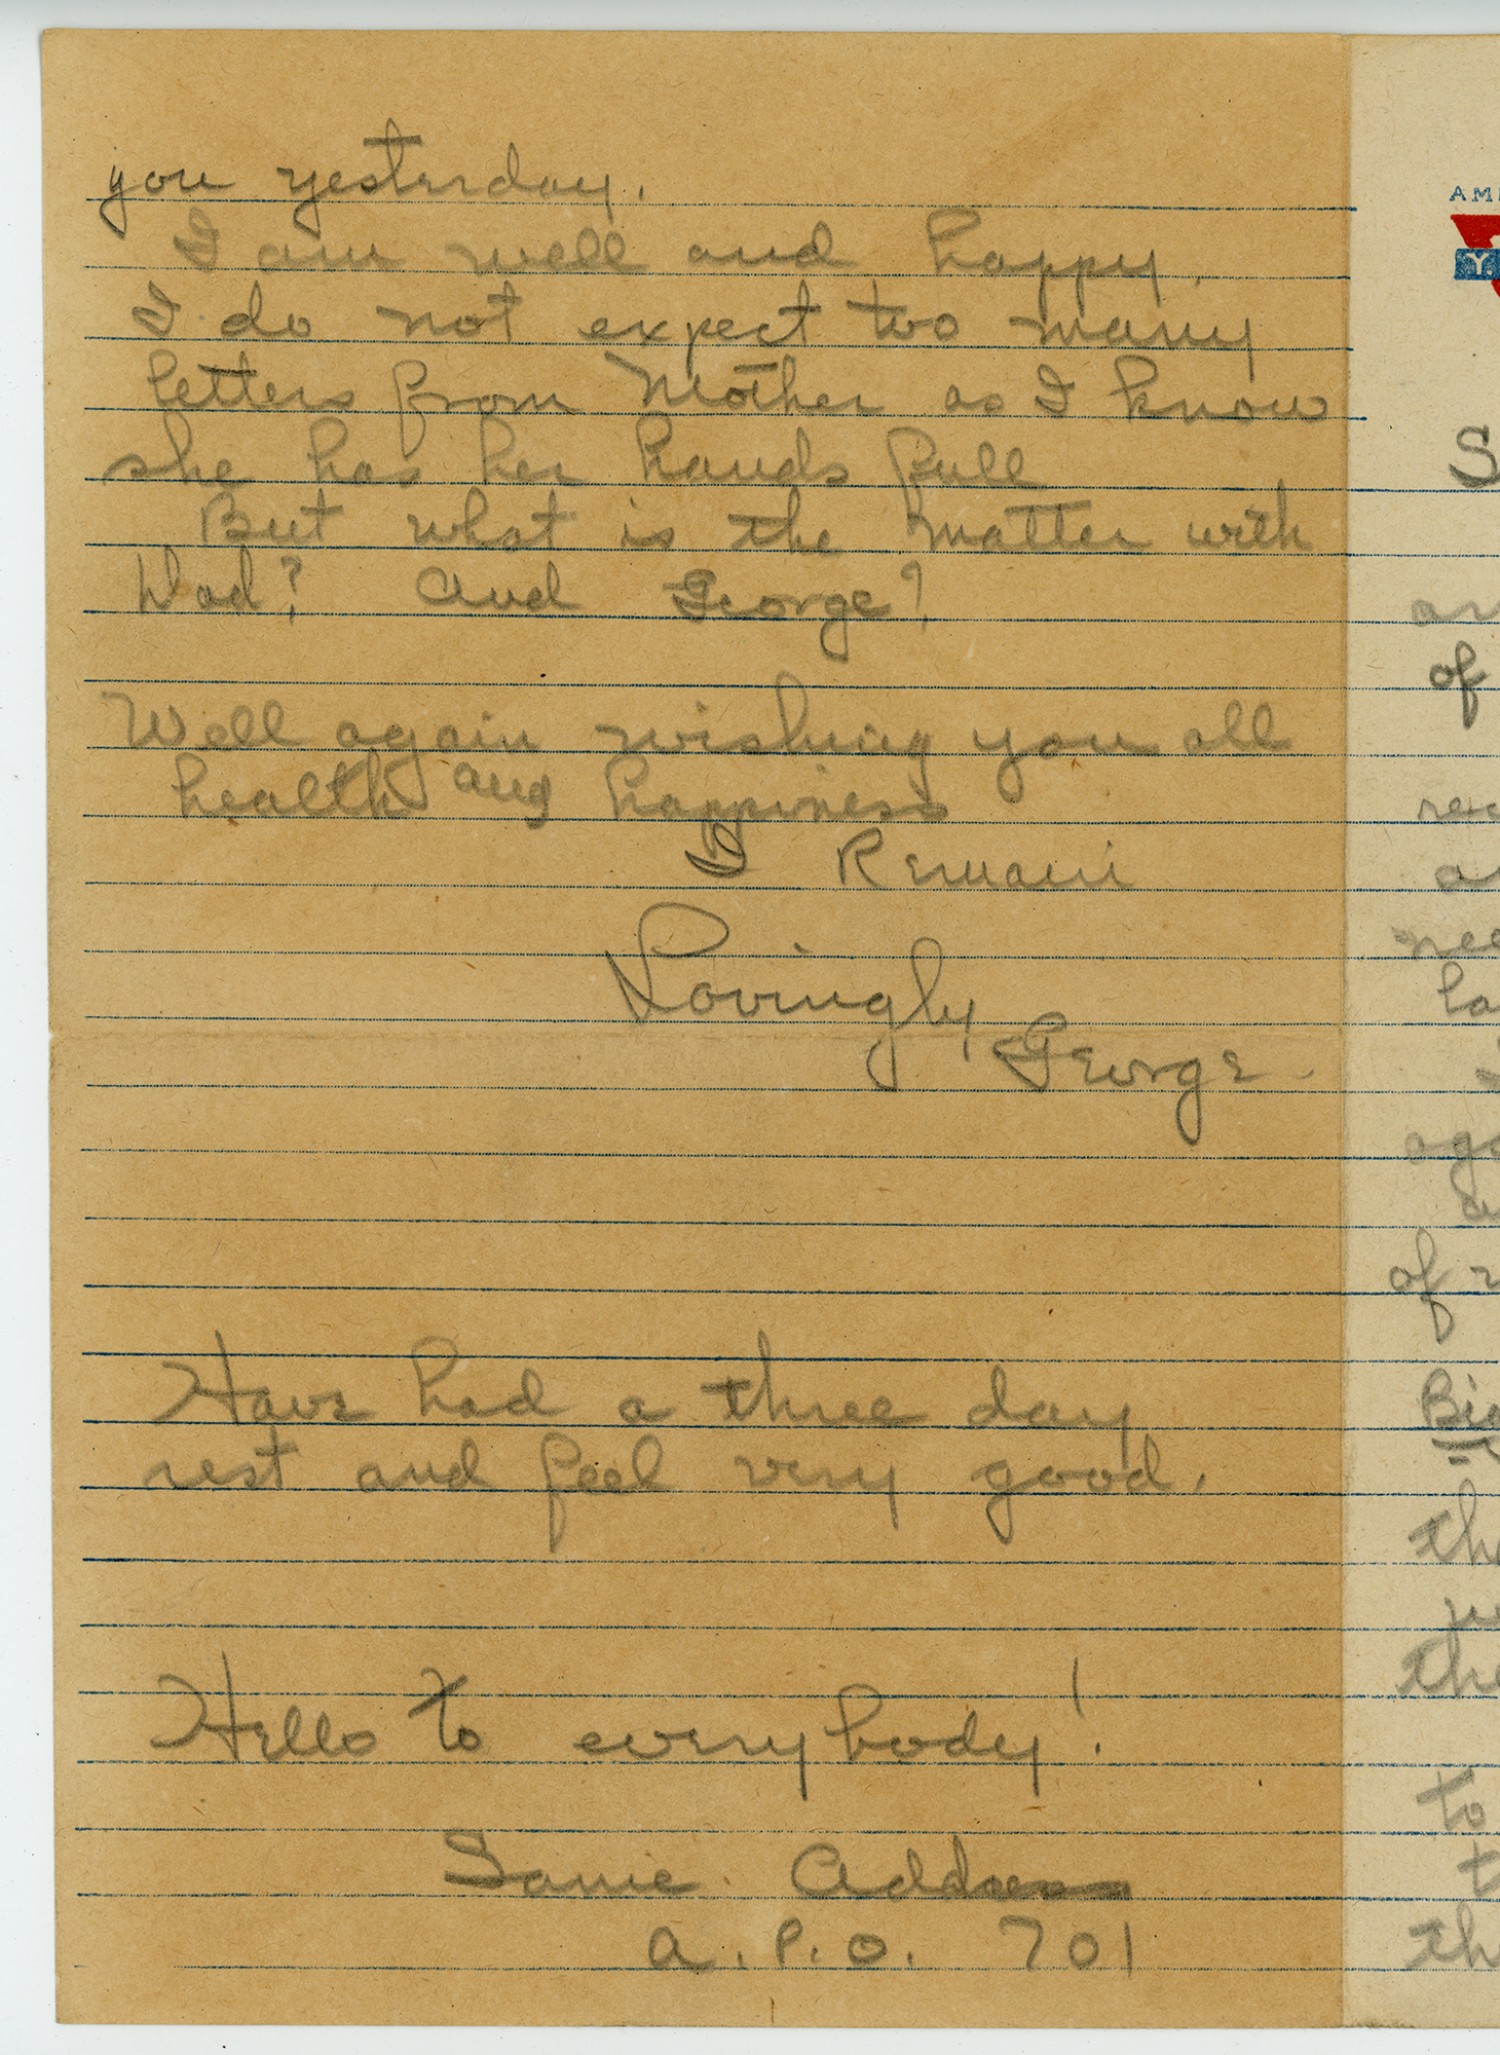 you yesterday.
I am well and happy.
I do not expect too many
letters from Mother as I know
she has her hands full
But what is the matter with
Dad? And George?
Well again wishing you all
health and happiness
I Remain
Lovingly,
George.
Have had a three day
rest and feel very good.
Hello to everybody!
Same Address
A.P.O. 701
AM
Y.
S
of
of
Big
to